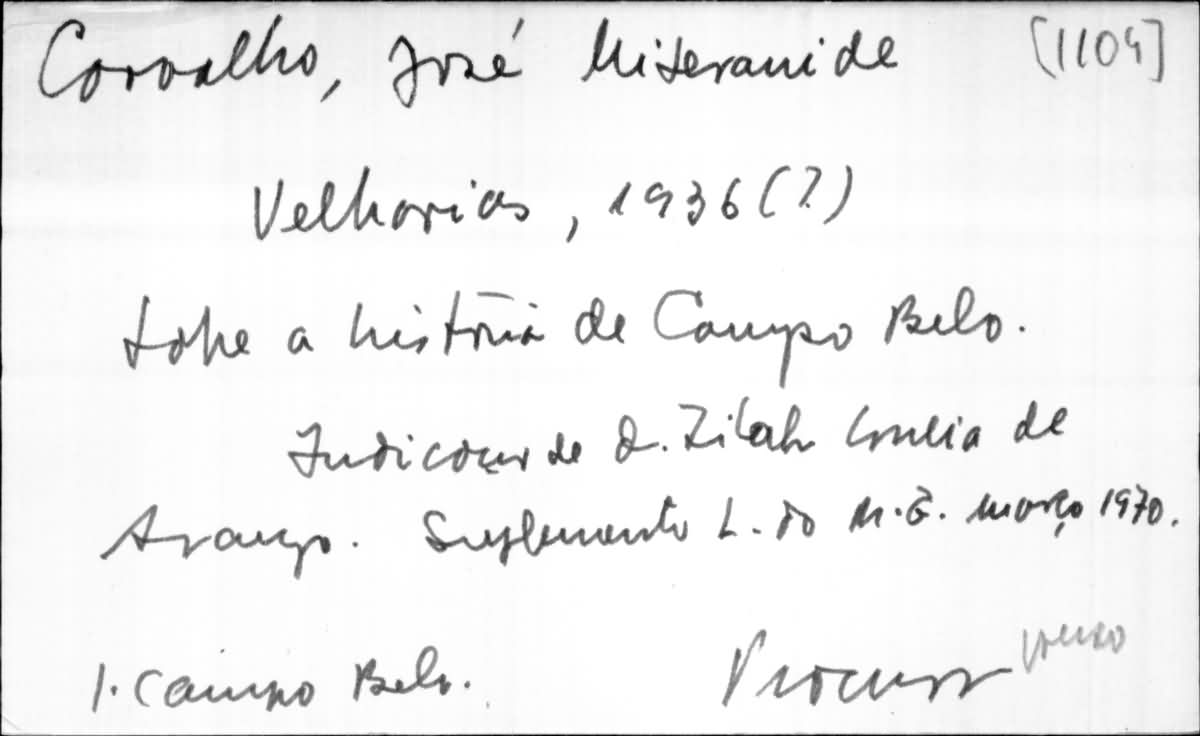 Carvalho, José Miserani de [1104]
Velharias, 1936 (?)
sobre a história de Campo Belo.
Indicaçao de D. Zilah Corrêia de
Araujo. Suplemento L. do M.G. março 1970.
1. Campo Belo. Procurar